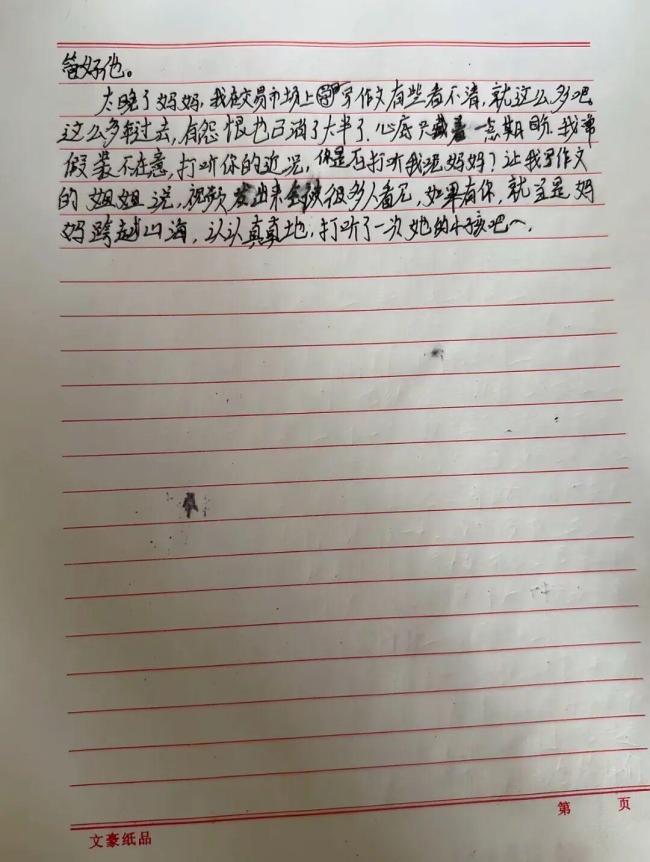 管好他。
太晚了妈妈,我在交易市场上写作文有些看不清,就这么多吧
这么多年过去,有怨恨也已消了大半了.心底只藏着一点期盼.我常
假装不在意,打听你的近况,你是否打听我呢妈妈?让我写作文
的姐姐说,视频发出来会被很多人看见,如果有你,就当是妈
妈跨越山海,认认真真地,打听了一次她的小孩吧~.
第 页
文豪纸品